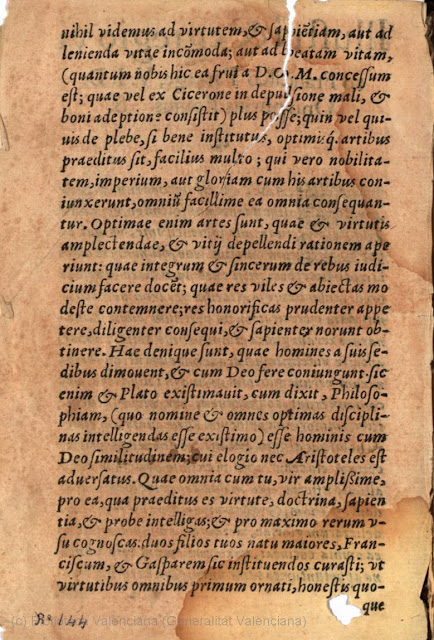 nihil videmus ad virtutem, & sapiētiam, aut ad
lenienda vitae incōmoda; aut ad beatam vitam,
(quantum nobis hic ea frui a D.O.M. concessum
est; quae vel ex Cicerone in depulsione mali, &
boni adeptione consistit) plus posse; quin vel qui-
uis de plebe, si bene institutus, optimisq́. artibus
praeditus sit, facilius multo; qui vero nobilita-
tem, imperium, aut gloriam cum his artibus con-
iunxerunt, omniū facillime ea omnia consequan-
tur. Optimae enim artes sunt, quae & virtutis
amplectendae, & vitij depellendi rationem ape
riunt: quae integrum & sincerum de rebus iudi-
cium facere docēt; quae res viles & abiectas mo
deste contemnere; res honorificas prudenter appe
tere, diligenter consequi, & sapienter norunt ob-
tinere. Hae denique sunt, quae homines a suis se-
dibus dimouent, & cum Deo fere coniungunt. sic
enim & Plato existimauit, cum dixit, Philoso-
phiam, (quo nomine & omnes optimas discipli-
nas intelligendas esse existimo) esse hominis cum
Deo similitudinem; cui elogio nec Aristoteles est
aduersatus. Quae omnia cum tu, vir amplissime,
pro ea, qua praeditus es virtute, doctrina, sapien
tia, & probe intelligas; & pro maximo rerum v-
su cognoscas: duos filios tuos natu maiores, Fran-
ciscum, & Gasparem sic instituendos curasti; vt
virtutibus omnibus primum ornati, honestis quo-
que
Rº 144
(c) Valenciana (Generalitat Valenciana)